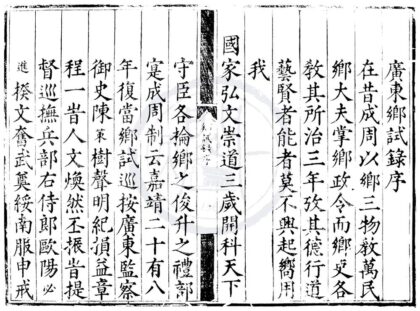 廣東鄉試錄序
在昔成周以鄉三物教萬民
鄉大夫掌鄉政令而鄉吏各
教其所治三年攷其德行道
藝賢者能者莫不興起嚮用
我
國家弘文崇道三歲開科天下
守臣各掄鄉之俊升之禮部
寔成周制云嘉靖二十有八
年復當鄉試巡按廣東監察
御史陳樹聲明紀損益章
程一旹人文煥然丕振旹提
督巡撫兵部右侍郎歐陽必
進揆文奮武奠綏南服申戒